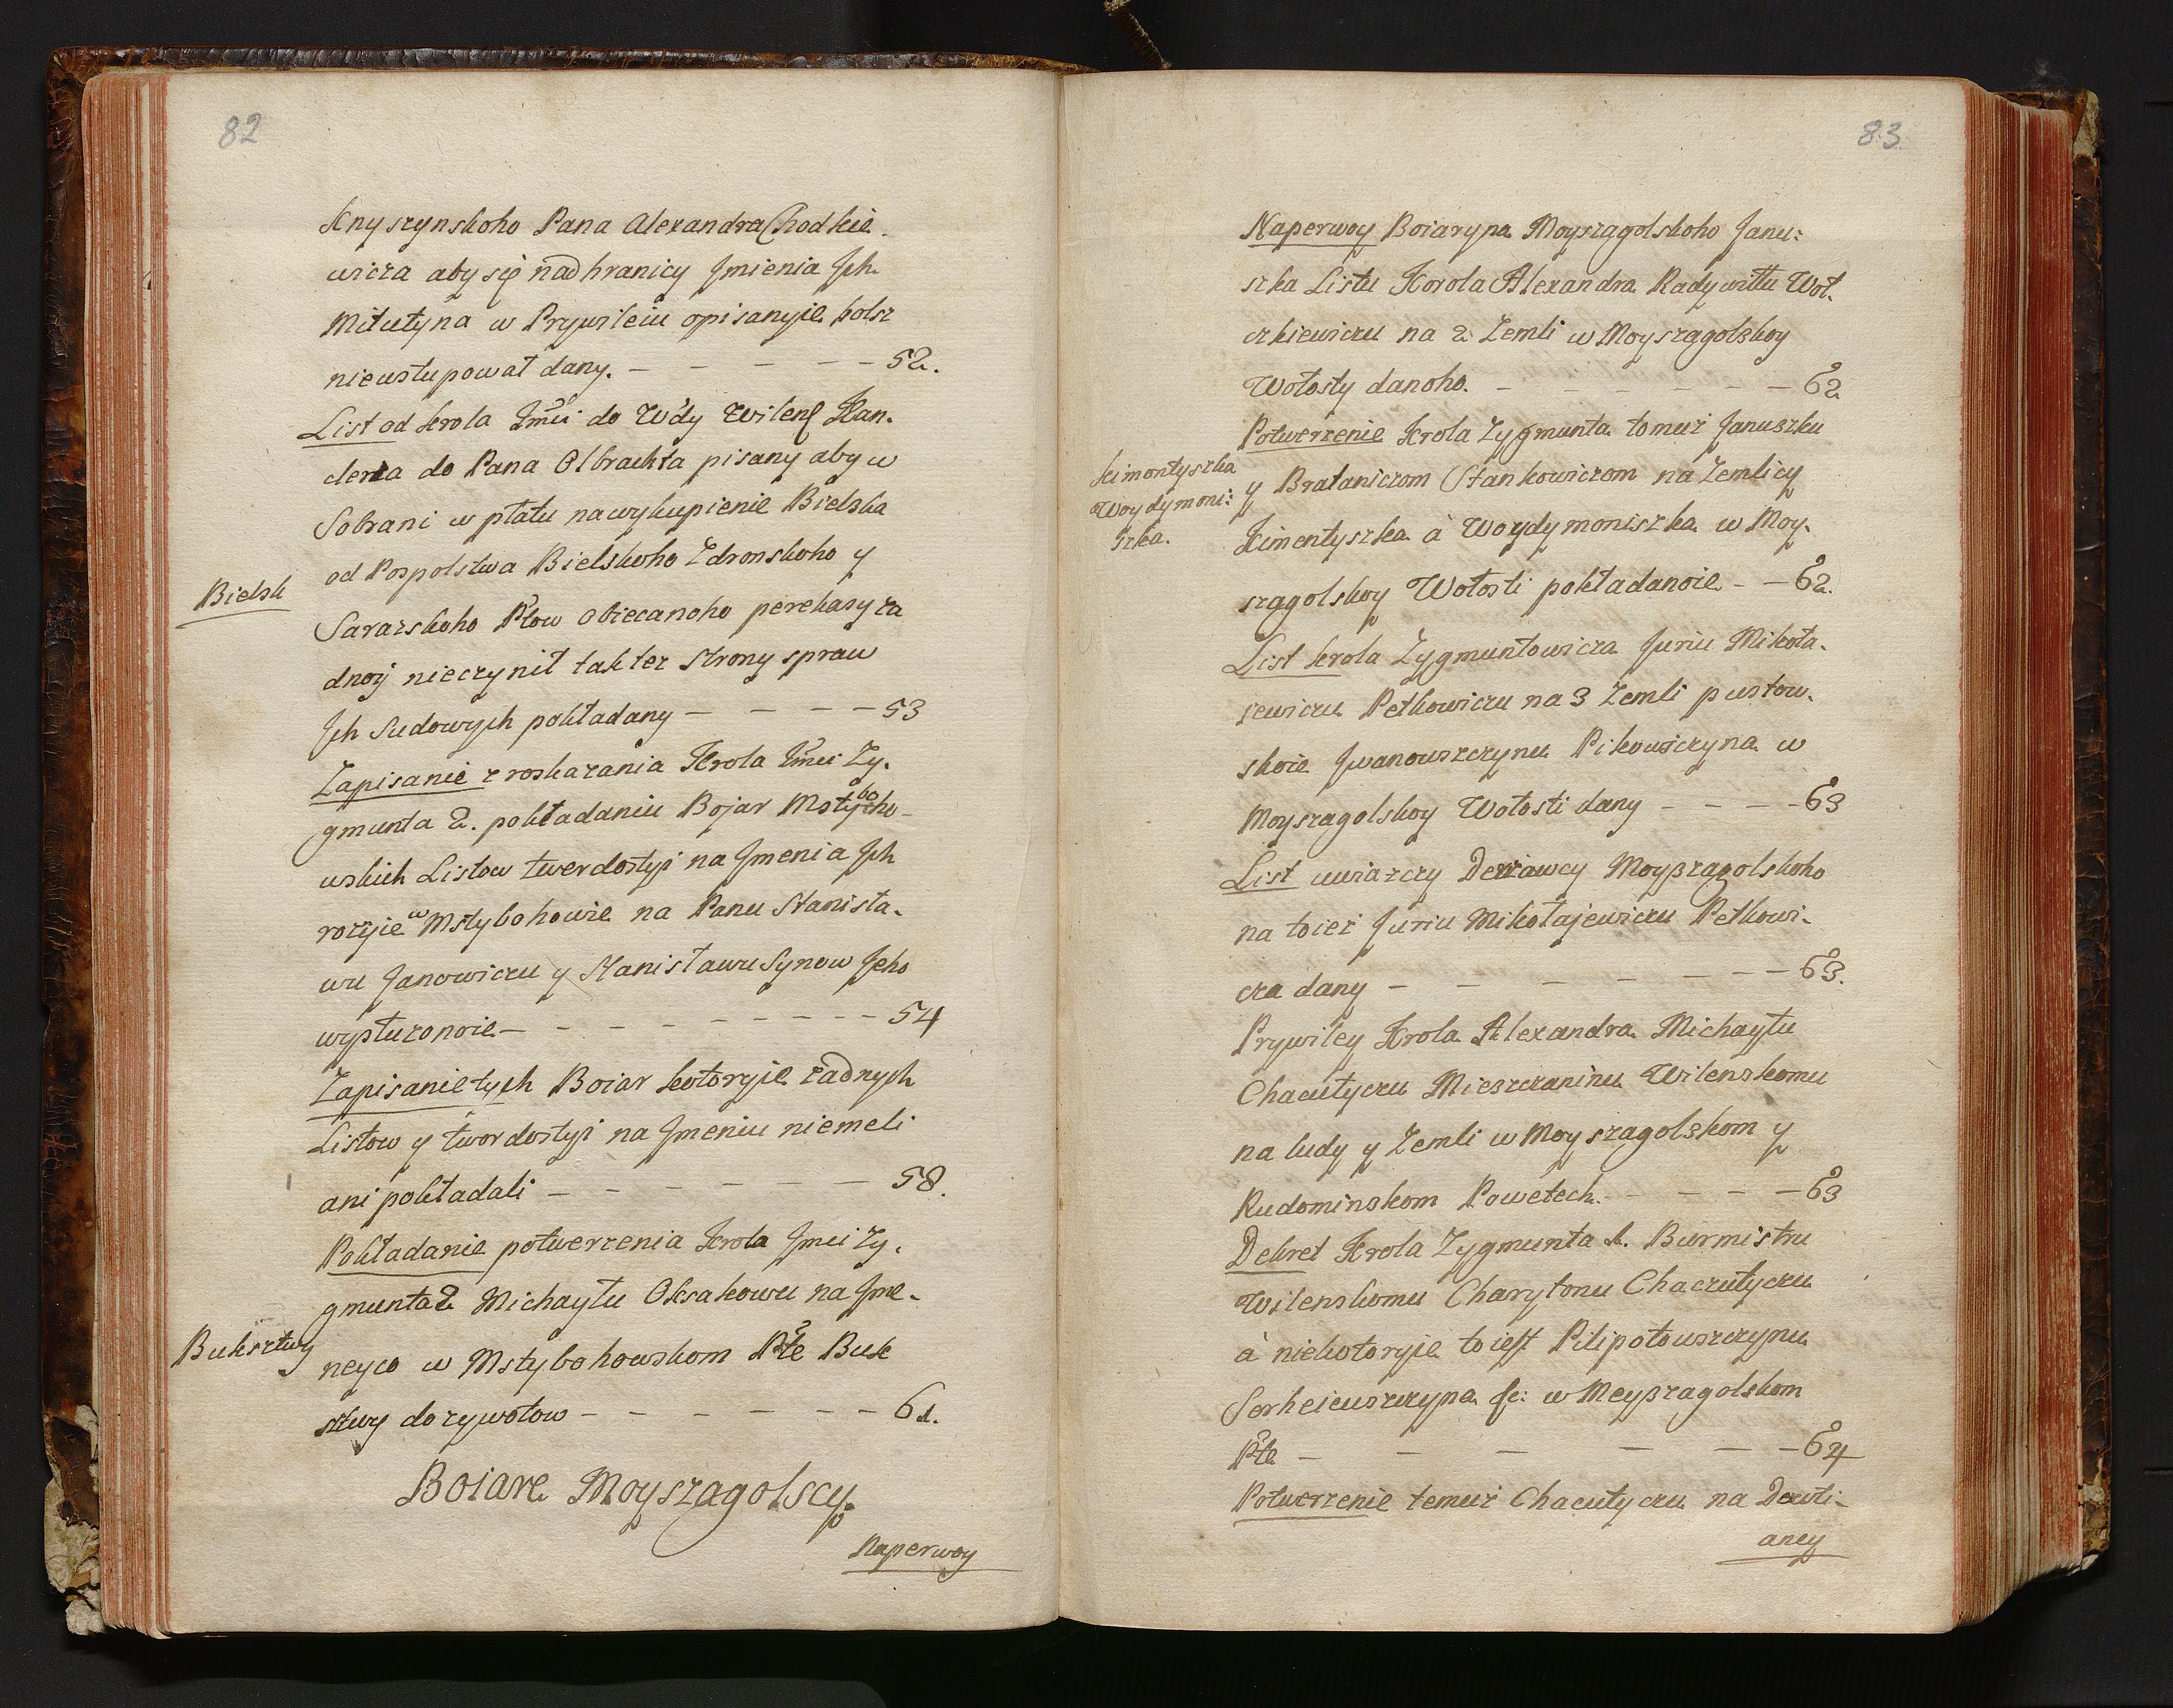 82
Knyszynskoho Pana Alexandra Chodkie-
wicza aby się nad hranicy Jmienia Jch
Miłutyna w Prywileiu opisanyie bolsz
nieustupował dany. — — — — — 52.
List od Krola Jmći do Wdy Wilen Kan.
clerza do Pana Olbrachta pisany aby w
Sobrani w płatu na wykupienie Bielska
od Pospolstwa Bielskoho Zdronskoho y
Bielsk
Sarazskoho Ptow obiecanoho perekasy za
dnoj nieczynił takter strony spraw
Jch Sudowych pokładany — — — — 53
Zapisanie z roskazania Krola Jmći Zy.
gmunta 2. pokładaniu Bojar Mstybo
wskich Listow twerdostyi na Jmenia Jch
rozyie w Mstybohowie na Panu Stanisła.
wu Janowiczu y Stanisławu Synow Jeho
wysłuzonoie — — — — — — — — 54
Zapisanie tych Boiar kotoryie zadnych
Listow y twordostyi na Jmeniu niemeli
ani pokładali — — — — — — — 58.
Pokładanie potwerzenia Krola Jmći Zy.
gmunta 2 Michayłu Oksakowu na Jme-
Buksztwy
neyco w Mstybohowskom Pte Buk
sztwy do zywotow — — — — — — 61.
Boiare Moyszagolscy.
Naperwoy
83
Naperwoy Boiaryna Moyszagolskoho Janu:
szka Listu Korola Alexandra Radywiłłu Woł.
czkiewiczu na 2 Zemli w Moyszagolskoy
Wołosty danoho. — — — — — — — 62
Potwerzenie Krola Zygmunta tomuż Januszku
Kimontyszka
Woydymoni:
szka.
y Brataniczom Stankowiczom na Zemlicy
Kimentyszka à Woydymoniszka w Moy.
szagolskoy Wołosti pokładanoie — — 62.
List Krola Zygmuntowicza Juriu Mikoła.
jewiczu Petkowiczu na 3 Zemli pustow.
skoie Jwanowszczynu Pikowsczyna w
Moyszagolskoy Wołosti dany — — — — 63
List uwiazczy Derżawcy Moyßzagolskoho
na toież Juriu Mikołajewiczu Petkowi-
cza dany — — — — — — — 63.
Prywiley Krola Alexandra Michayłu
Chacutyczu Mieszczaninu Wilenskomu
na ludy y Zemli w Moyszagolskom y
Rudominskom Powetech. — — — — 63
Dekret Krola Zygmunta 1. Burmistru
Wilenskomu Charytonu Chaczutyczu
à niekotoryie to iest Pilipołowszczynu
Serheiewszczyna &c: w Meyßzagolskom
Pte — — — — — — 64
Potwerzenie temuż Chacutyczu na Dewti-
aney